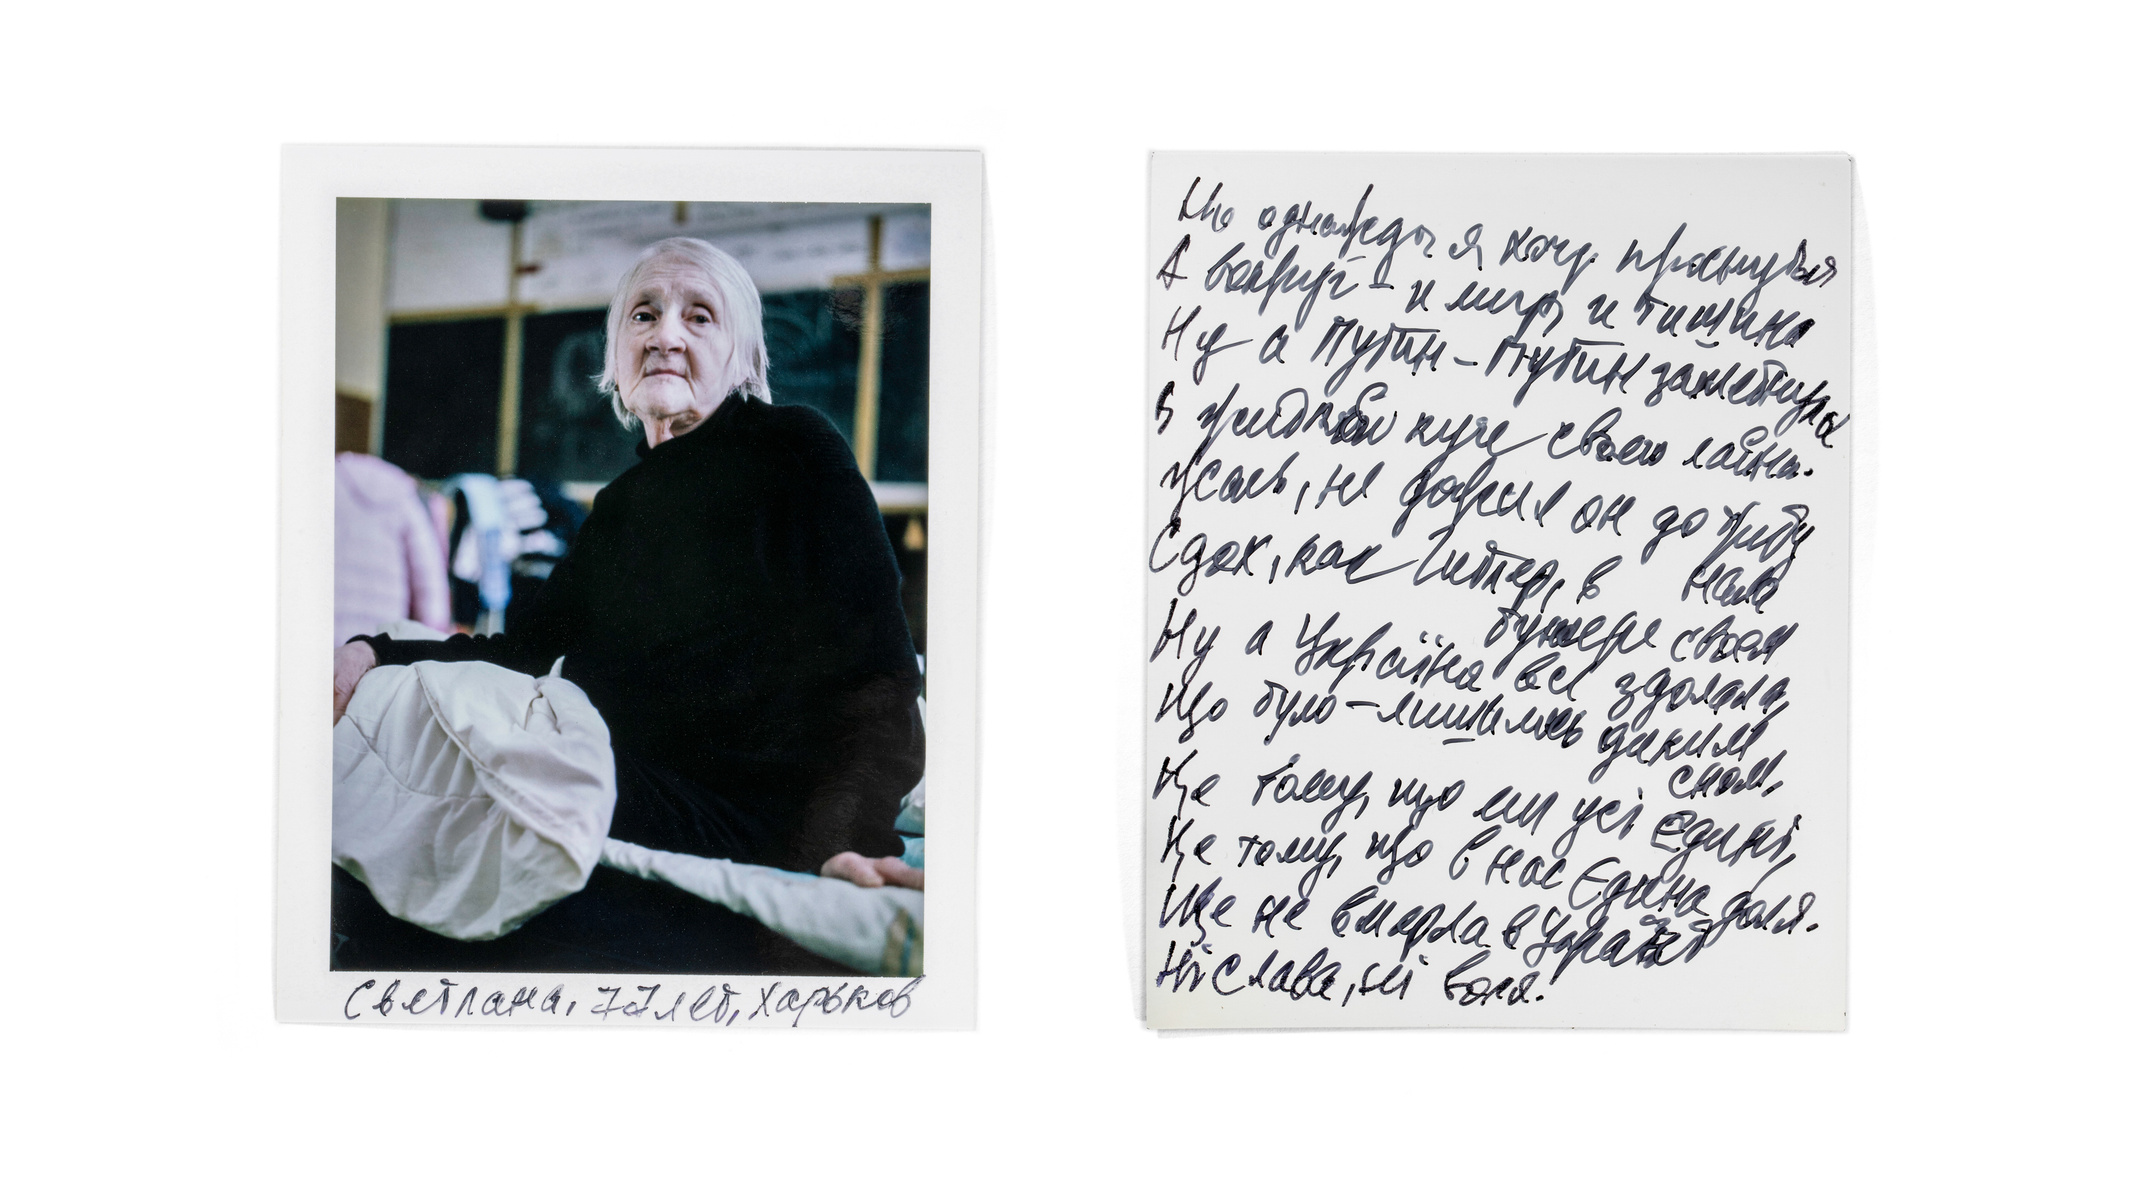 Светлана, 77 лет, Харьков
Но однажды я хочу проснуться
А вокруг – и мир, и тишина
Ну а Путин – Путин захлебнулся
В жидкой куче своего лайна.
Жаль, не дожил он до трибу
нала
Сдох, как Гитлер, в
бункере своем
Ну а Україна все здолала,
Що було – лишилось диким
сном,
Це тому, що ми усі Єдині,
Це тому, що в нас Єдина доля.
Ще не вмерла в Україні
Ні слава, ні воля!